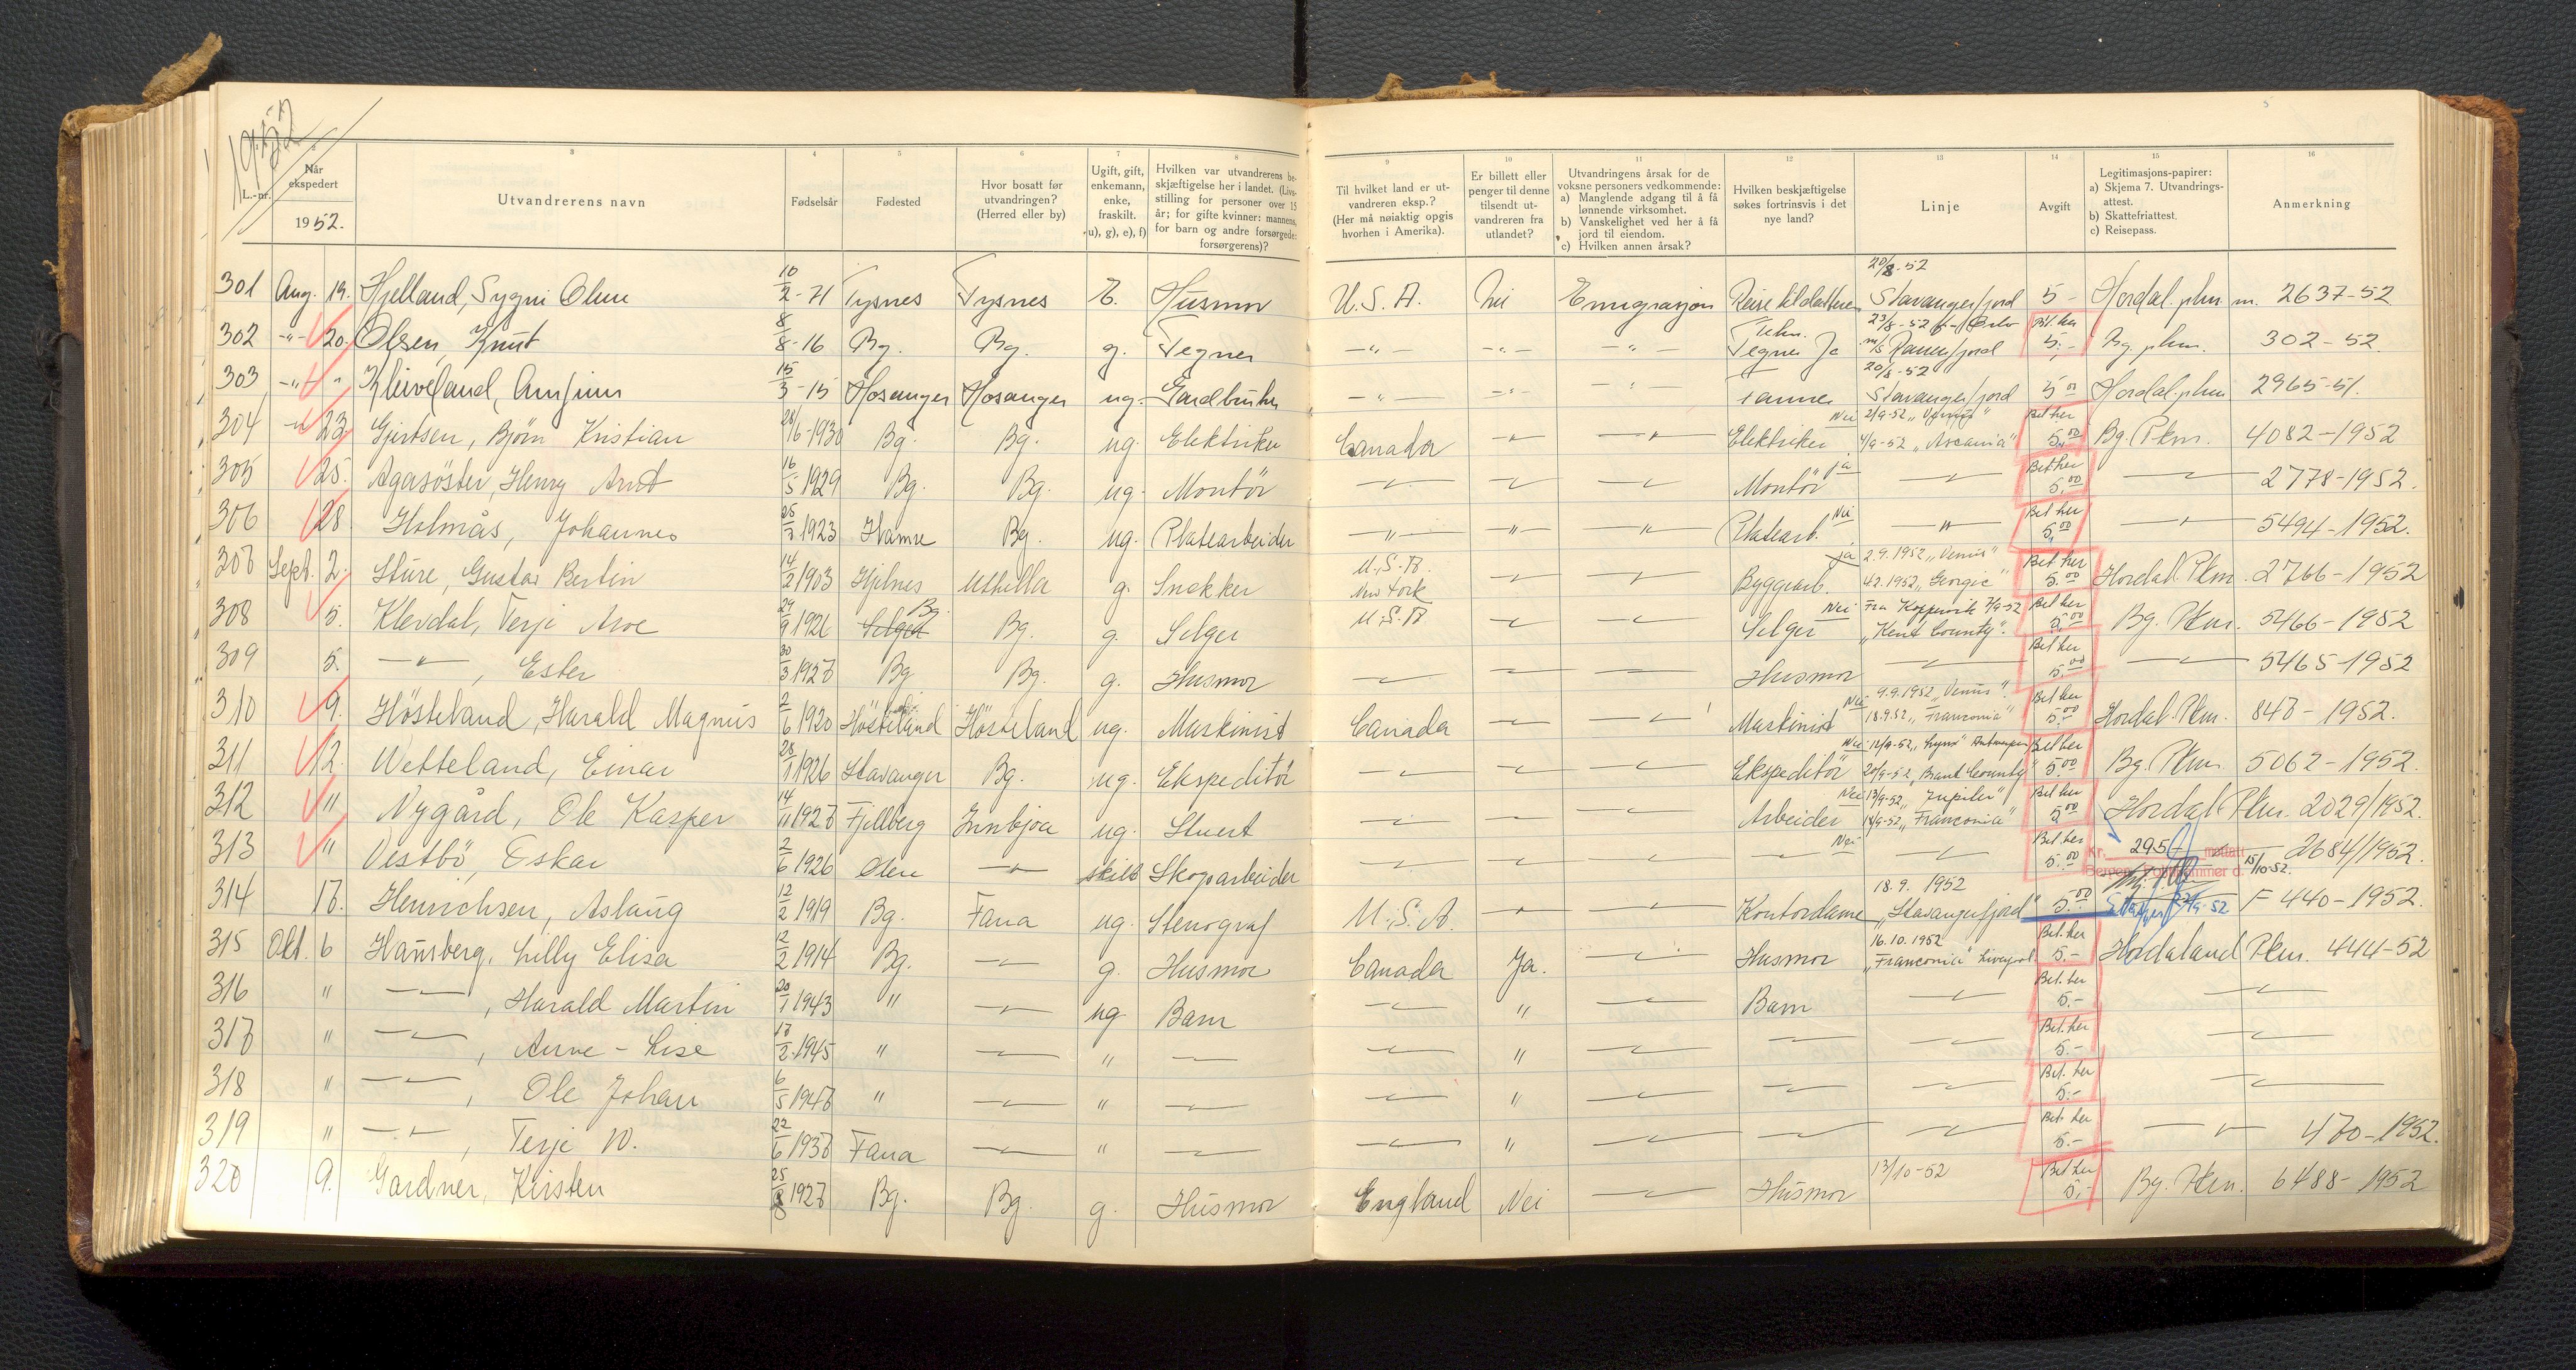 1952
L.-nr.
Når ekspedert
1952.
3
Utvandrerens navn
4
Fødselsår
5
Fødested
6
Hvor bosatt før utvandringen? (Herred eller by)
7
Ugift, gift, enkemann, enke, fraskilt. u), g), e), f)
8
Hvilken var utvandrerens beskjæftigelse her i landet. (Livsstilling for personer over 15 år; for gifte kvinner: mannens, for barn og andre forsørgede: forsørgerens)?
9
Til hvilket land er utvandreren eksp.? (Her må nøiaktig opgis hvorhen i Amerika).
10
Er billett eller penger til denne tilsendt utvandreren fra utlandet?
11
Utvandringens årsak for de voksne personers vedkommende:
a) Manglende adgang til å få lønnende virksomhet.
b) Vanskelighet ved her å få jord til eiendom.
c) Hvilken annen årsak?
12
Hvilken beskjæftigelse søkes fortrinsvis i det nye land?
13
Linje
14
Avgift
15
Legitimasjons-papirer:
a) Skjema 7. Utvandringsattest.
b) Skattefriattest.
c) Reisepass.
16
Anmerkning
301 Aug. 19. Hjelland, Sygni Oline 10/2-71 Tysnes Tysnes E. Husmor U.S.A. Nei Emigrasjon Reise til datteren 20/8-52 Stavangerfjord 5- Hordal. pkm m. 2637-52
302 -"- 20. Olsen, Knut 8/8-16 Bg. Bg. g. Tegner -"- -"- -"- Tekn. Tegner Ja 23/8-52 Oslo m/s Ranenfjord Bet. her 5,- Bg. pkm. 302-52
303 -"- " Kleiveland, Arnfinn 15/3-15 Hosanger Hosanger ug. Gardbruker -"- -"- -"- 20/8-52 Stavangerfjord 5 00 Hordal. pkm 2965-51.
304 -"- 23. Gjertsen, Bjørn Kristian 28/6-1930 Bg. Bg. ug. Elektriker Canada -"- -"- Elektriker Nei 2/9-52 4/9-52 "Ascania" Bet her 5,00 Bg. Pkm. 4082-1952
305 25. Agasöster, Henry Arnt 16/5 1929 Bg. Bg. ug. Montör -"- -"- -"- Montör ja -"- Bet her 5,00 -"- 2778-1952.
306 28 Holmås, Johannes 25/3 1923 Hamre Bg. ug. Platearbeider -"- -"- -"- Platearb. Nei -"- Bet her 5,00 -"- 5494-1952.
307 Sept. 2. Sture, Gustav Bertin 14/2 1903 Hjelmes g. Snekker U.S.A. New York -"- -"- Byggearb. ja 2.9.1952 "Venus" 4.2.1952 "Georgic" Bet her 5.00 Hordal. Pkm. 2766-1952
308 5. Klevdal, Terje Arve 29/9 1926 Selger Bg. Bg. g. Selger U.S.A -"- -"- Selger Nei Fra Kopervik 7/9-52 "Kent County". Bet her 5.00 Bg. Pkm. 5466-1952
309 5. -"-, Ester 30/3 1927 Bg Bg. g. Husmor -"- -"- -"- Husmor -"- Bet her 5.00 -"- 5465-1952
310 9. Hösteland, Harald Magnus 2/6 1920 Hösteland Hösteland ug. Maskinist Canada -"- -"- Maskinist Nei 9.9.1952 "Venus". 18.9.52 "Franconia" Bet her 5.00 Hordal. Pkm. 847-1952.
311 12. Wetteland, Einar 28/1 1926 Stavanger Bg. ug. Ekspeditör -"- -"- -"- Ekspeditör Nei 12/9-52 "Lynx" Antwerpen 20/9-52 "Brant County" Bet her 5.00 Bg. Pkm. 5062-1952.
312 " Nygård, Ole Kasper 14/11 1927 Fjellberg Innbjoa ug. Stuert -"- -"- -"- Arbeider Nei 13/9-52 "Jupiter" 18/9-52 "Franconia" Bet her 5.00 Hordal. Pkm. 2029/1952.
313 " Vestbö, Eskar 2/6 1926 Ølen -"- skilt Skogsarbeider -"- -"- -"- -"- Nei -"- Bet. her 5.00 Kr. 295,- mottatt 15/10-52. 2684/1952.
314 17. Henrichsen, Aslaug 12/2 1919 Bg. Fana ug. Stenograf U.S.A. -"- -"- Kontordame 18.9. 1952 "Stavangerfjord" 5.00 F 440-1952.
315 Okt. 6 Hansberg, Lilly Elisa 2/2 1914 Bg. -"- g. Husmor Canada Ja. -"- Husmor 16.10.1952 "Franconia" Liverpool Bet. her 5.- Hordaland Pkm. 444-52
316 " -"-, Harald Martin 20/1 1943 " -"- ug Barn -"- " -"- Barn -"- Bet. her 5.- -"-
317 " -"-, Anne-Lise 17/2 1945 " -"- " -"- -"- " -"- -"- -"- Bet. her 5.- -"-
318 " -"-, Ole Johan 6/5 1947 " -"- " -"- -"- " -"- -"- -"- Bet. her 5.- -"-
319 " -"-, Terje W. 22/6 1937 Fana -"- " -"- -"- " -"- -"- -"- Bet. her 5.- -"- 470-1952.
320 9. Gardner, Kirsten 25/8 1927 Bg. Bg. g. Husmor England Nei -"- Husmor 13/10-52 Bet her 5,- Bg. Pkm. 6488-1952